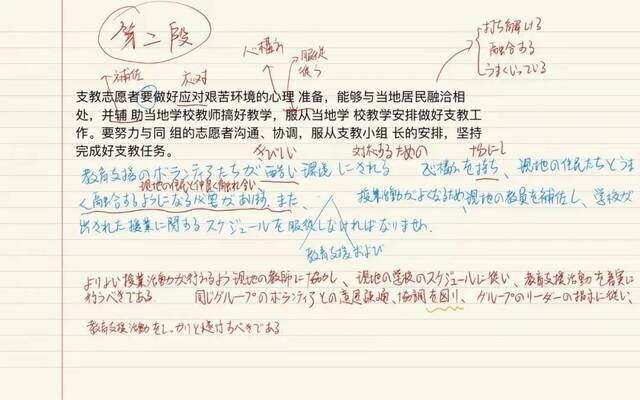 第二段
打ち解ける
融合する
うまくいっている
心構え
服従
従う
補佐
応対
支教志愿者要做好应对艰苦环境的心理 准备，能够与当地居民融洽相
处，并辅 助当地学校教师搞好教学，服从当地学 校教学安排做好支教工
作。要努力与同 组的志愿者沟通、协调，服从支教小组 长的安排，坚持
完成好支教任务。
きびしい 対応するための
教育支援のボランティアたちが 環境にされる 心構えを持ち、現地の住民たちとうま
現地の住民と仲良く触れ合い
く融合するようになる必要があります。また、 授業活動がよくなるため、現地の教員を補佐し、学校が
出された授業に関するスケジュールを服従しなければなりません。
教育支援および
よりよい授業活動が行えるよう現地の教師に協力し、現地の学校のスケジュールに従い、教育支援活動を着実に
行うべきである。 同じグループのボランティアとの意思疎通、協調を図り、グループのリーダーの指示に従い、
教育支援活動をしっかりと続けるべきである